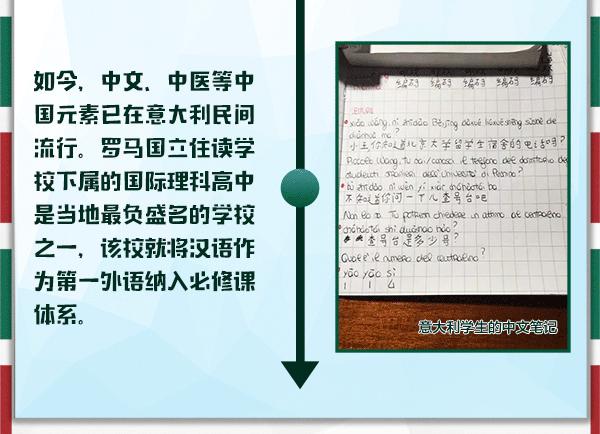 如今，中文、中医等中
国元素已在意大利民间
流行。罗马国立住读学
校下属的国际理科高中
是当地最负盛名的学校
之一，该校就将汉语作
为第一外语纳入必修课
体系。
编码 编码 编码 编码
LETTURA
xiǎo wáng, nǐ zhīdào Běijīng dàxué liúxuéshēng sùshè de
diànhuà ma?
小王你知道北京大学留学生宿舍的电话吗?
Piccolo Wang, tu sai/conosci il telefono del dormitorio de
studenti stranieri dell'Università di Pechino?
bù zhīdào nǐ wèn yí xiàr cháhàotái ba
不知道你问一下儿查号台吧
Non lo so. Tu potresti chiedere un attimo al centralino
cháhàotái shì duōshao hào?
查号台是多少号
Qual è il numero del centralino?
yāo yāo sì
1 1 4
意大利学生的中文笔记